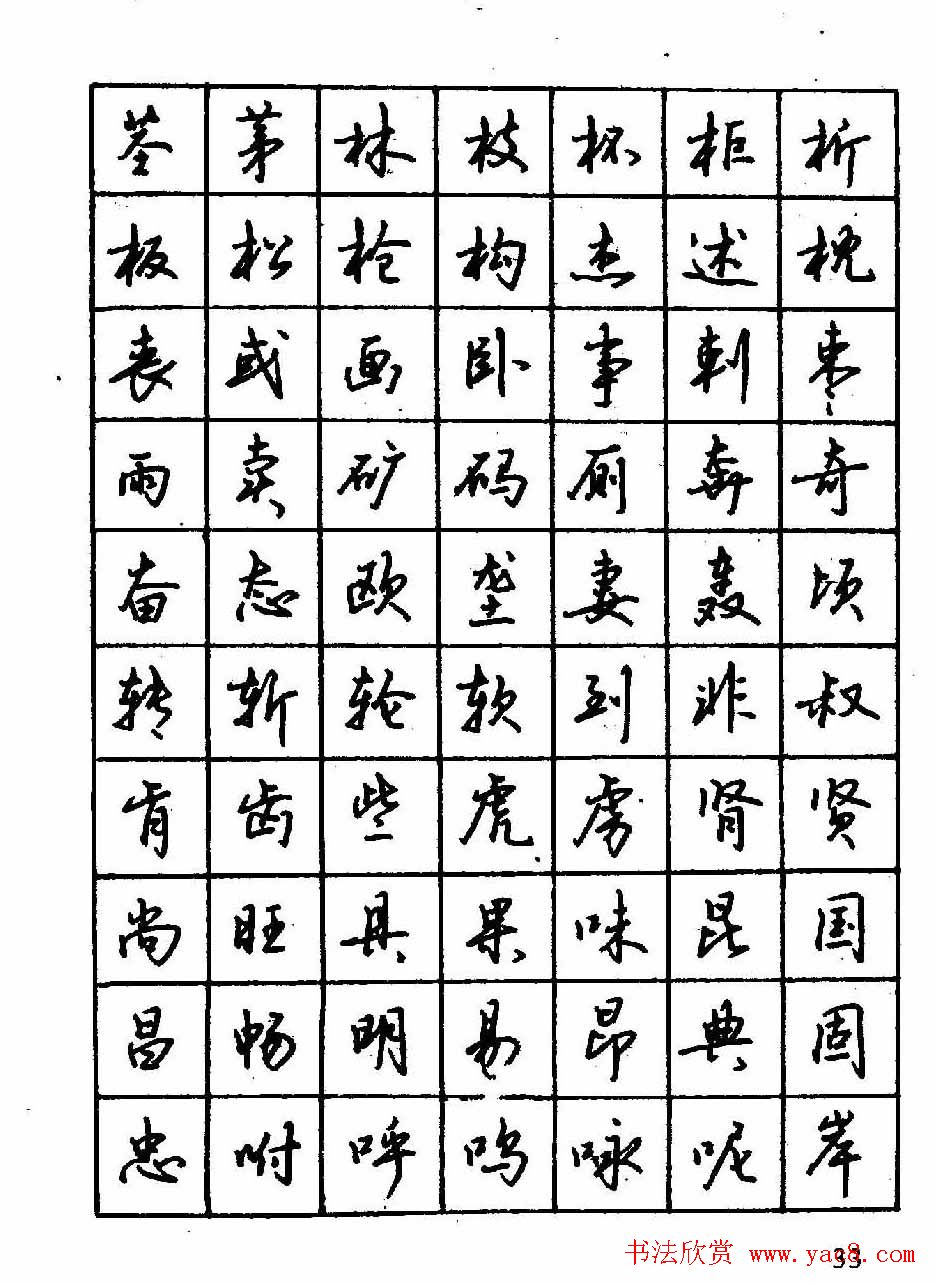 茎 茅 林 枝 杯 柜 析
板 松 枪 构 杰 述 枕
丧 或 画 卧 事 刺 枣
雨 卖 矿 码 厕 奔 奇
奋 态 欧 垄 妻 轰 顷
转 斩 轮 软 到 非 叔
肯 齿 些 虎 虏 肾 贤
尚 旺 具 果 味 昆 国
昌 畅 明 易 昂 典 固
忠 咐 呼 鸣 咏 呢 岸
33
书法欣赏 www.yac8.com